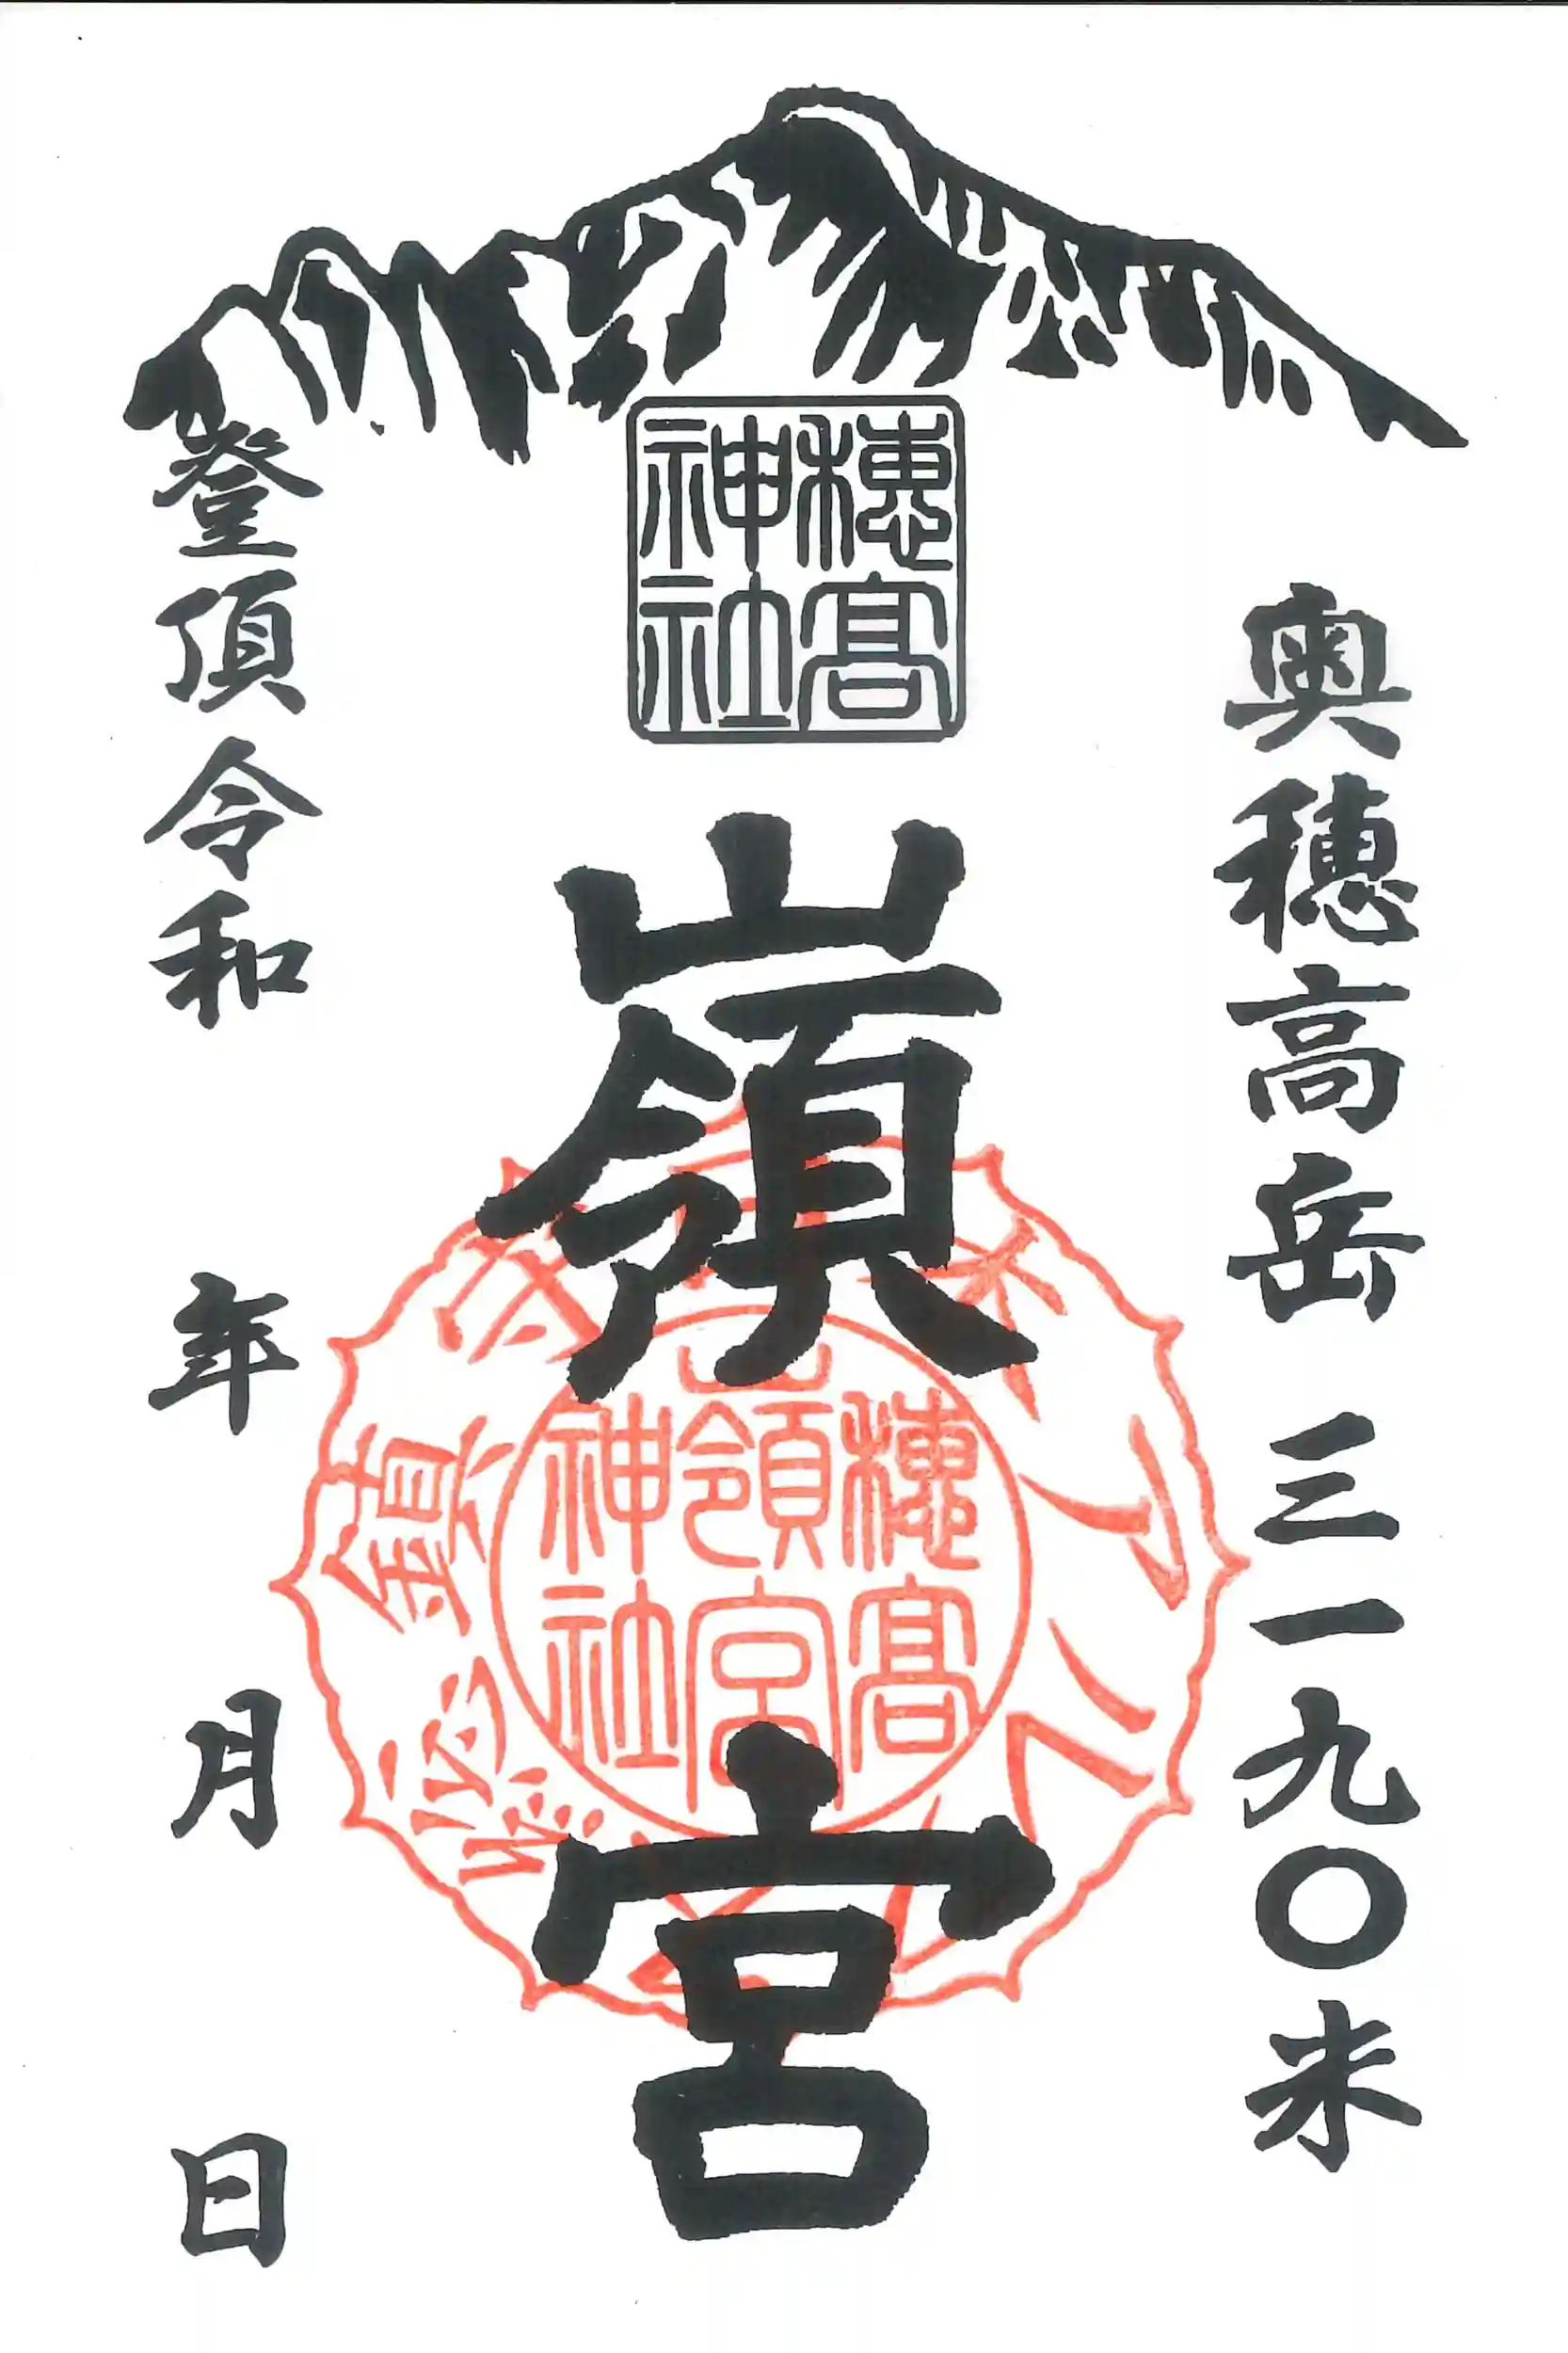 奥穂高岳 三一九〇米
穂高
神社
嶺宮
穂高
嶺宮
神社
登頂 令和 年 月 日